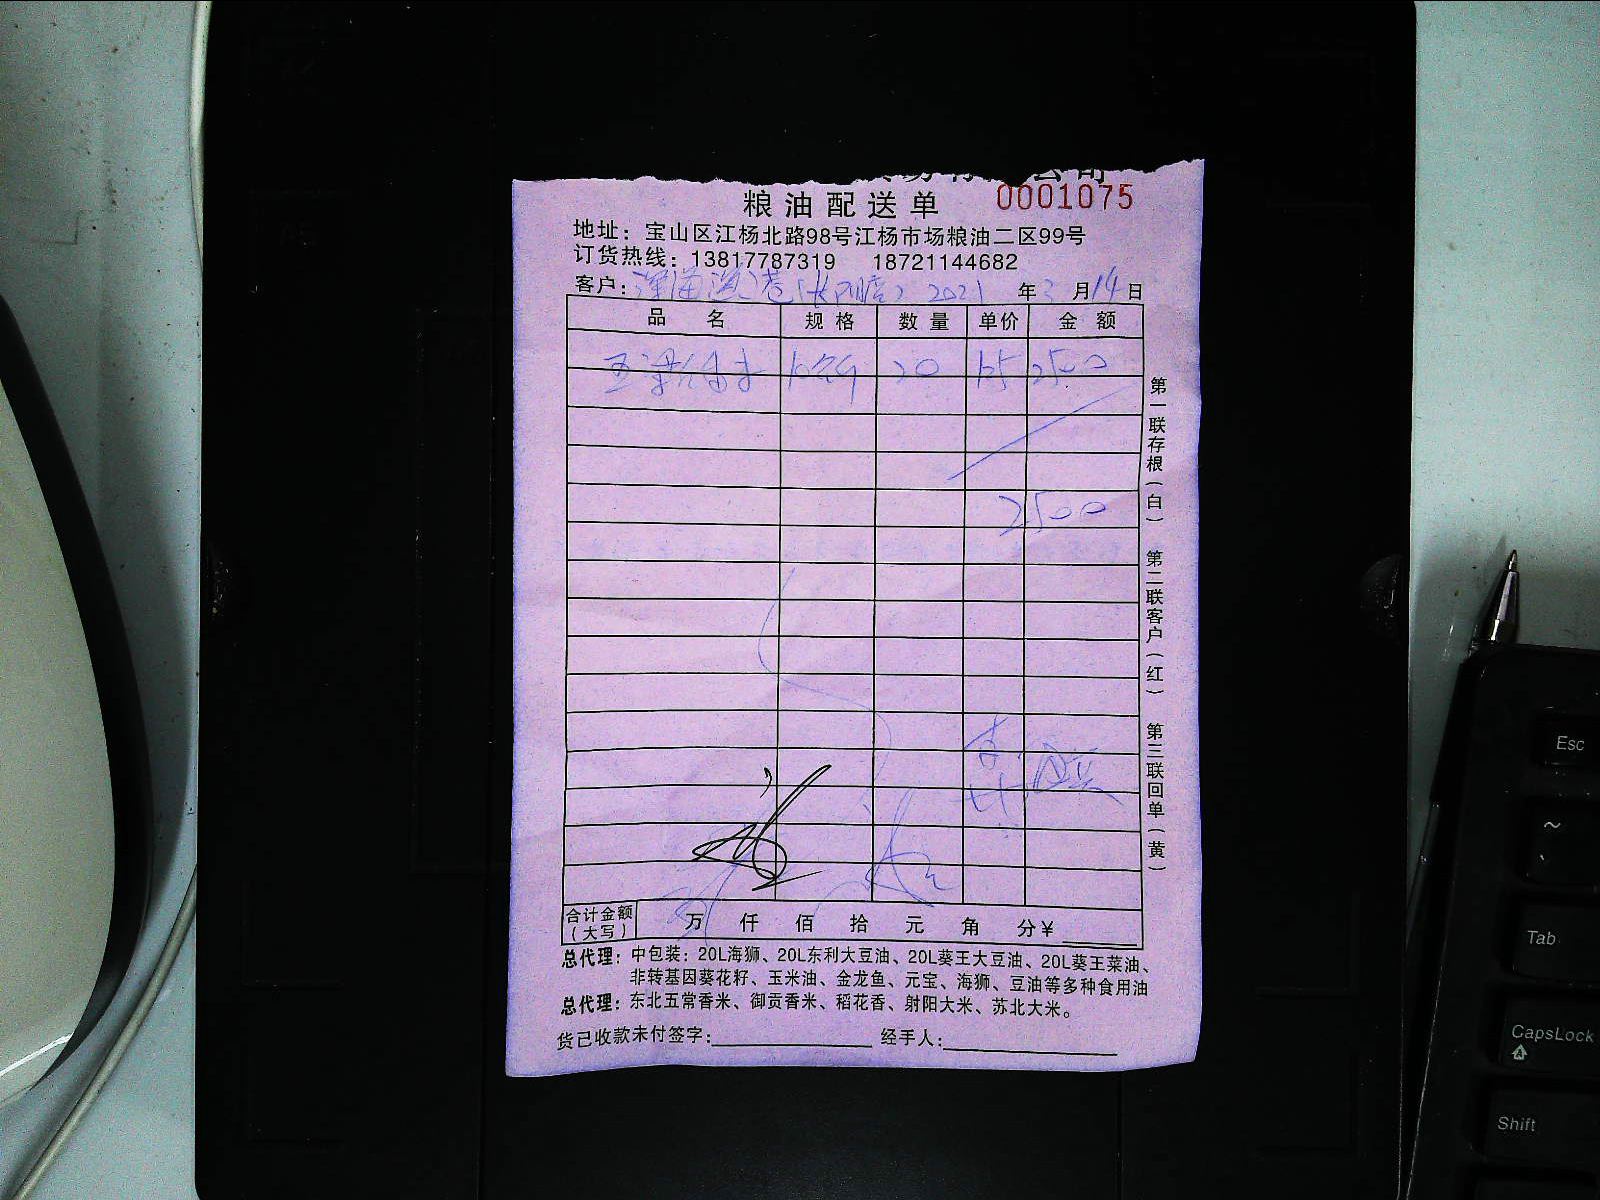 公司
粮油配送单 0001075
地址：宝山区江杨北路98号江杨市场粮油二区99号
订货热线：13817787319 18721144682
客户： 2021 年3月14日
品 名 规 格 数 量 单价 金 额
20 125 2500
2500
合计金额（大写） 万 仟 佰 拾 元 角 分￥
总代理：中包装：20L海狮、20L东利大豆油、20L葵王大豆油、20L葵王菜油、
非转基因葵花籽、玉米油、金龙鱼、元宝、海狮、豆油等多种食用油
总代理：东北五常香米、御贡香米、稻花香、射阳大米、苏北大米。
货已收款未付签字： 经手人：
第一联存根（白） 第二联客户（红） 第三联回单（黄）
Esc
~
Tab
CapsLock
A
Shift